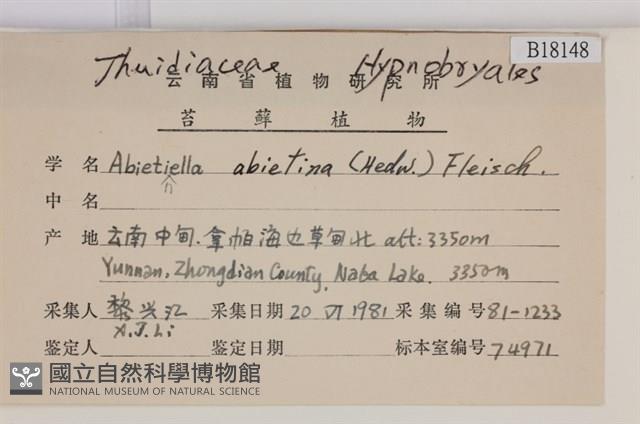 B18148
Thuidiaceae Hypnobryales
云南省植物研究所
苔藓植物
学名 Abietiella abietina (Hedw.) Fleisch.
n
中名
产地 云南中甸.拿帕海边草甸北 alt: 3350m
Yunnan, Zhongdian County, Naba Lake. 3350m
采集人 黎兴江 采集日期 20 VI 1981 采集编号 81-1233
X.J.Li
鉴定人 鉴定日期 标本室编号 74971
國立自然科學博物館
NATIONAL MUSEUM OF NATURAL SCIENCE